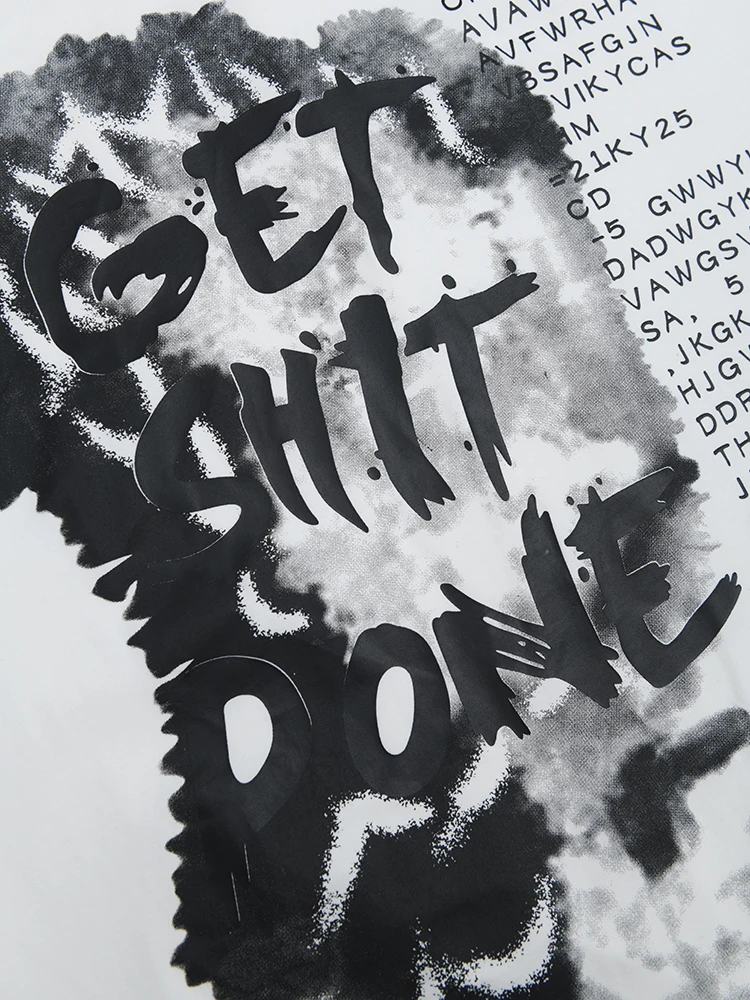 GET
SHIT
DONE
AVFWRHA
VBSAFGJN
VIKYCAS
=21KY25
CD
-5 GWWY
DADWGYK
VAWGSV
SA, 5
,JKGK
HJGV
DDF
TH
J